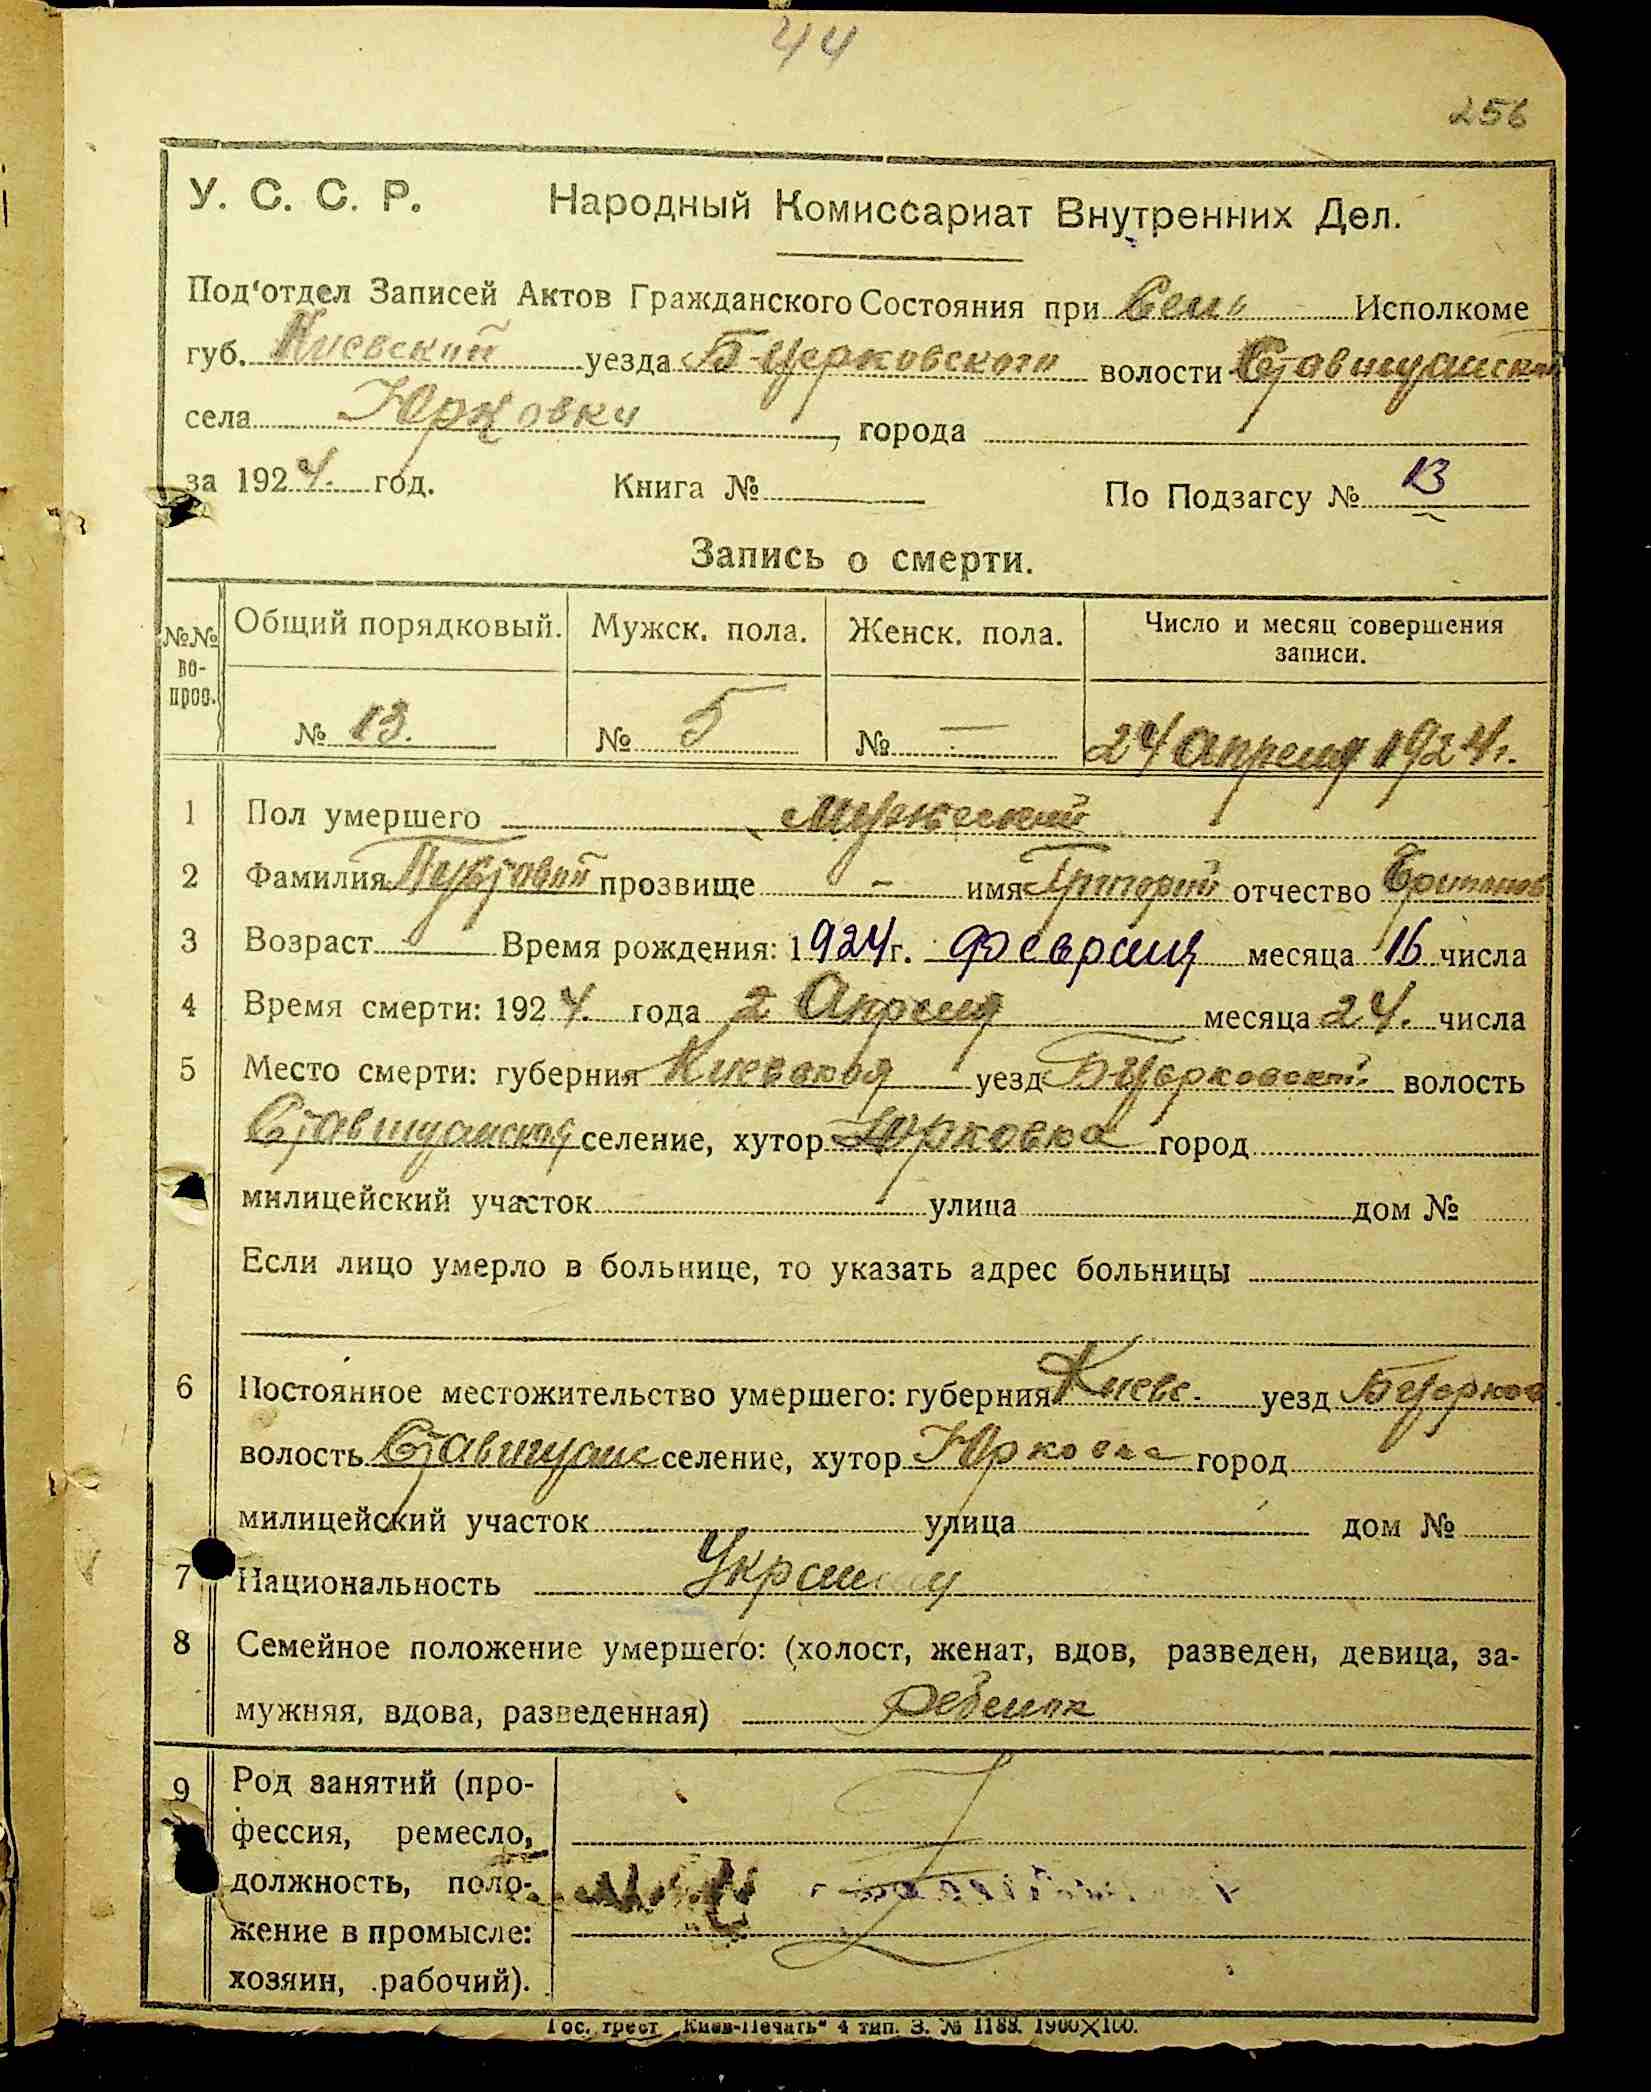 44
256
У. С. С. Р. Народный Комиссариат Внутренних Дел.
Под'отдел Записей Актов Гражданского Состояния при Исполкоме
губ. Киевской уезда Б-Церковского волости Ставищанской
села Юрковки, города
за 1924. год. Книга № По Подзагсу № 13
Запись о смерти.
№№ во-прос. Общий порядковый. Мужск. пола. Женск. пола. Число и месяц совершения записи.
№ 13. № 5 № — 24 Апреля 1924 г.
1 Пол умершего Мужеский
2 Фамилия прозвище – имя Григорий отчество
3 Возраст — Время рождения: 1924 г. Февраля месяца 16 числа
4 Время смерти: 1924. года 2 Апреля месяца 24. числа
5 Место смерти: губерния Киевская уезд Б Церковский волость
Ставищанская селение, хутор Юрковка город
милицейский участок улица дом №
Если лицо умерло в больнице, то указать адрес больницы
6 Постоянное местожительство умершего: губерния Киевс. уезд Б Церков
волость Ставищанс селение, хутор Юрковка город
милицейский участок улица дом №
7 Национальность
8 Семейное положение умершего: (холост, женат, вдов, разведен, девица, за-
мужняя, вдова, разведенная) ребенок
9 Род занятий (про-
фессия, ремесло,
должность, поло-
жение в промысле:
хозяин, рабочий).
Гос. трест „Киев-Печать“ 4 тип. З. № 1188. 1900×100.